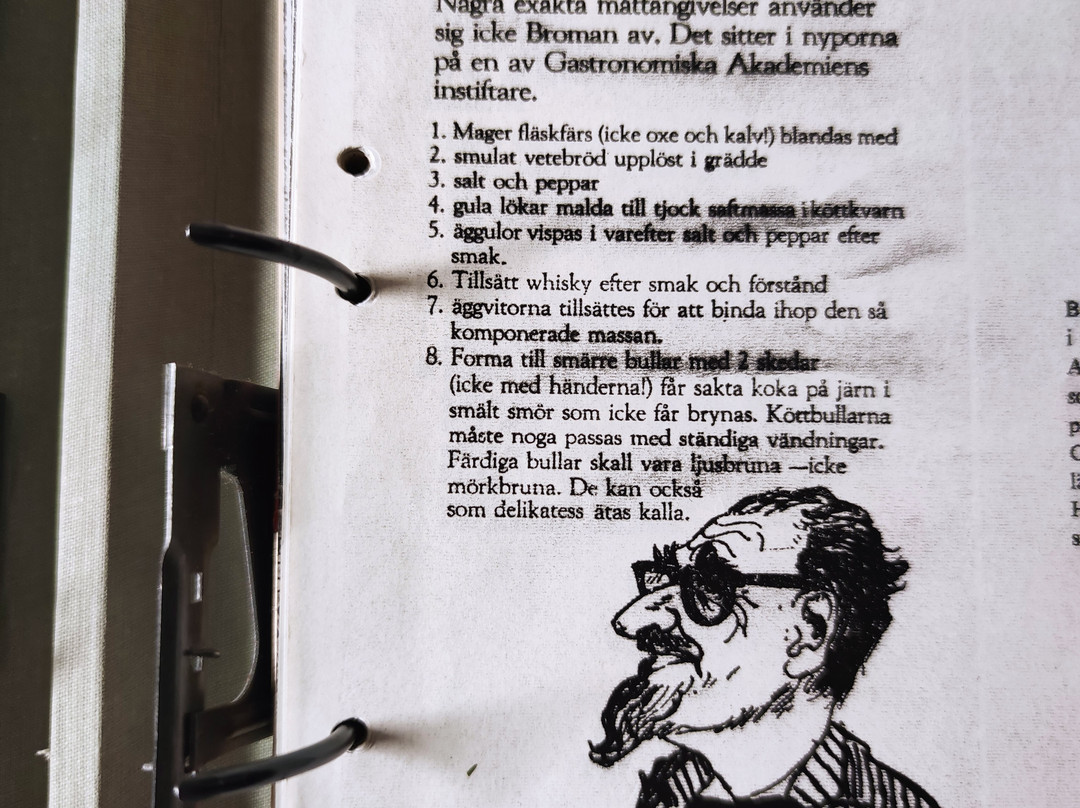 Några exakta måttangivelser använder
sig icke Broman av. Det sitter i nyporna
på en av Gastronomiska Akademiens
instiftare.
1. Mager fläskfärs (icke oxe och kalv!) blandas med
2. smulat vetebröd upplöst i grädde
3. salt och peppar
4. gula lökar malda till tjock saftmassa i köttkvarn
5. äggulor vispas i varefter salt och peppar efter
smak.
6. Tillsätt whisky efter smak och förstånd
7. äggvitorna tillsättes för att binda ihop den så
komponerade massan.
8. Forma till smärre bullar med 2 skedar
(icke med händerna!) får sakta koka på järn i
smält smör som icke får brynas. Köttbullarna
måste noga passas med ständiga vändningar.
Färdiga bullar skall vara ljusbruna —icke
mörkbruna. De kan också
som delikatess ätas kalla.